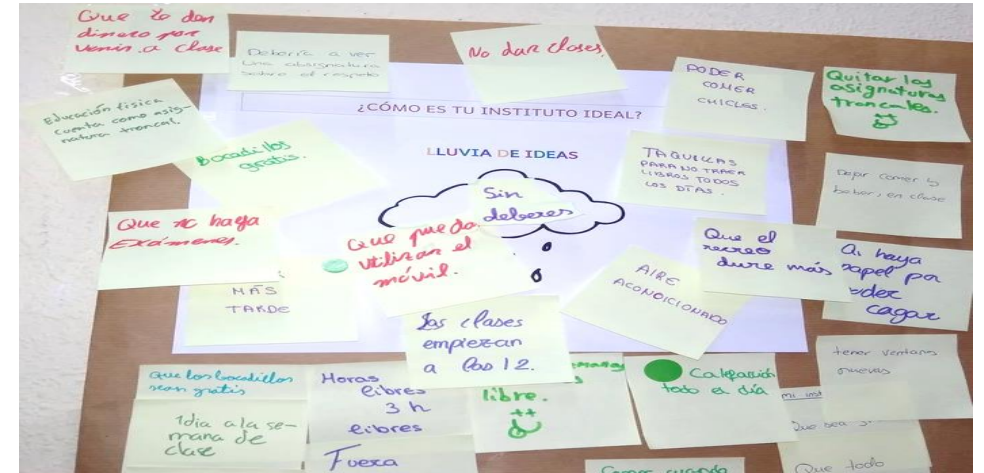 Que te den
dinero por
venir a clase
Debería a ver
una absignatura
sobre el respeto
No dar clases
PODER
COMER
CHICLES.
Quitar las
asignaturas
troncales.
Educación física
cuenta como asig-
natura troncal.
Bocadillos
gratis.
¿CÓMO ES TU INSTITUTO IDEAL?
LLUVIA DE IDEAS
TAQUILLAS
PARA NO TRAER
LIBROS TODOS
LOS DÍAS.
Dejar comer y
beber, en clase
Sin
deberes
Que no haya
Exámenes.
Que pueda
utilizar el
móvil.
Que el
recreo
dure más
haya
papel por
poder
cagar
MÁS
TARDE
AIRE
ACONDICIONADO
Las clases
empiezan
a las 12.
tener ventanas
nuevas
Que los bocadillos
sean gratis
Horas
libres
3 h
libres
libre.
++
Calefacción
todo el día
mi inst
1 dia a la se-
mana de
clase
Que sea
Fuera
Comer cuando
Que todo